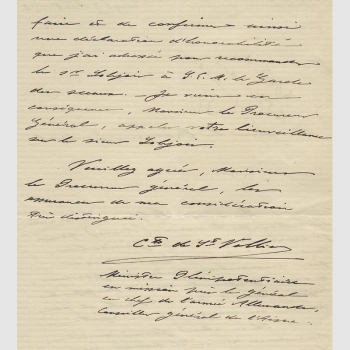 faire et de confirmer ainsi
une déclaration d'honorabilité
que j'ai adressée pour recommander
le Sr Lobjois à S. E. M. le Garde
des sceaux. - Je viens en
conséquence, Monsieur le Procureur
Général, appeler votre bienveillance
sur le sieur Lobjois.
Veuillez agréer, Monsieur
le Procureur général, les
assurances de ma considération
très distinguée.
Cte de St Vallier
Ministre Plénipotentiaire
en mission près le général
en chef de l'armée Allemande,
Conseiller général de l'Aisne.